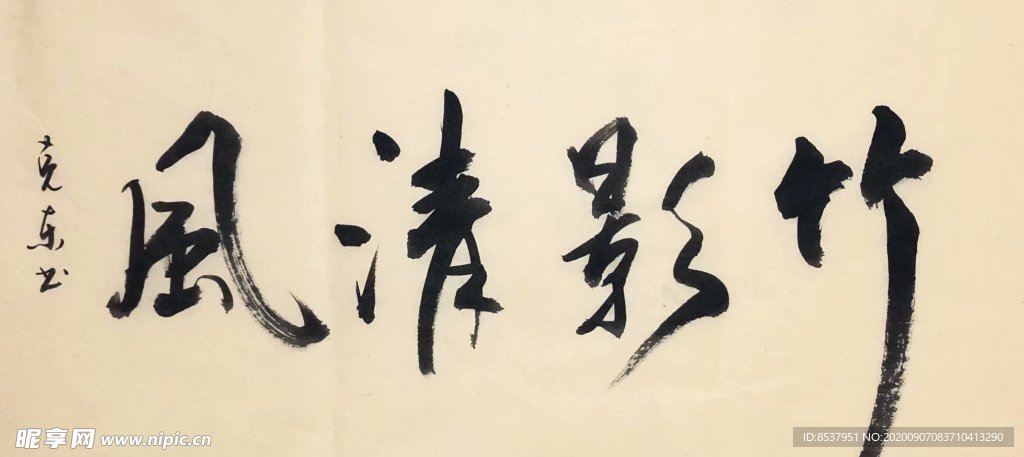 竹影清風
克东书
昵享网 www.nipic.cn
ID:8537951 NO:20200907083710413290